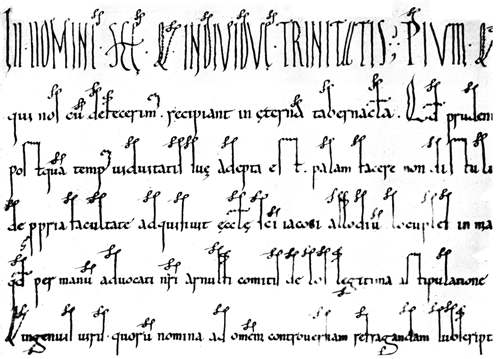 IN NOMINE SCE & INDIVIDUE TRINITATIS; PIUM &
qui nos cu defecerim recipiant in eterna tabernacla. pruden
postqua temp viduitatis sue adepta est. palam facere non distuli
de ppria facultate adquisivit eccle sci iacobi allodiu in ma
qd per manu advocati nri arnulfi comitis de los legitima astipulatione
ingenui viri quoru nomina ad omem controversiam refragandam subscript